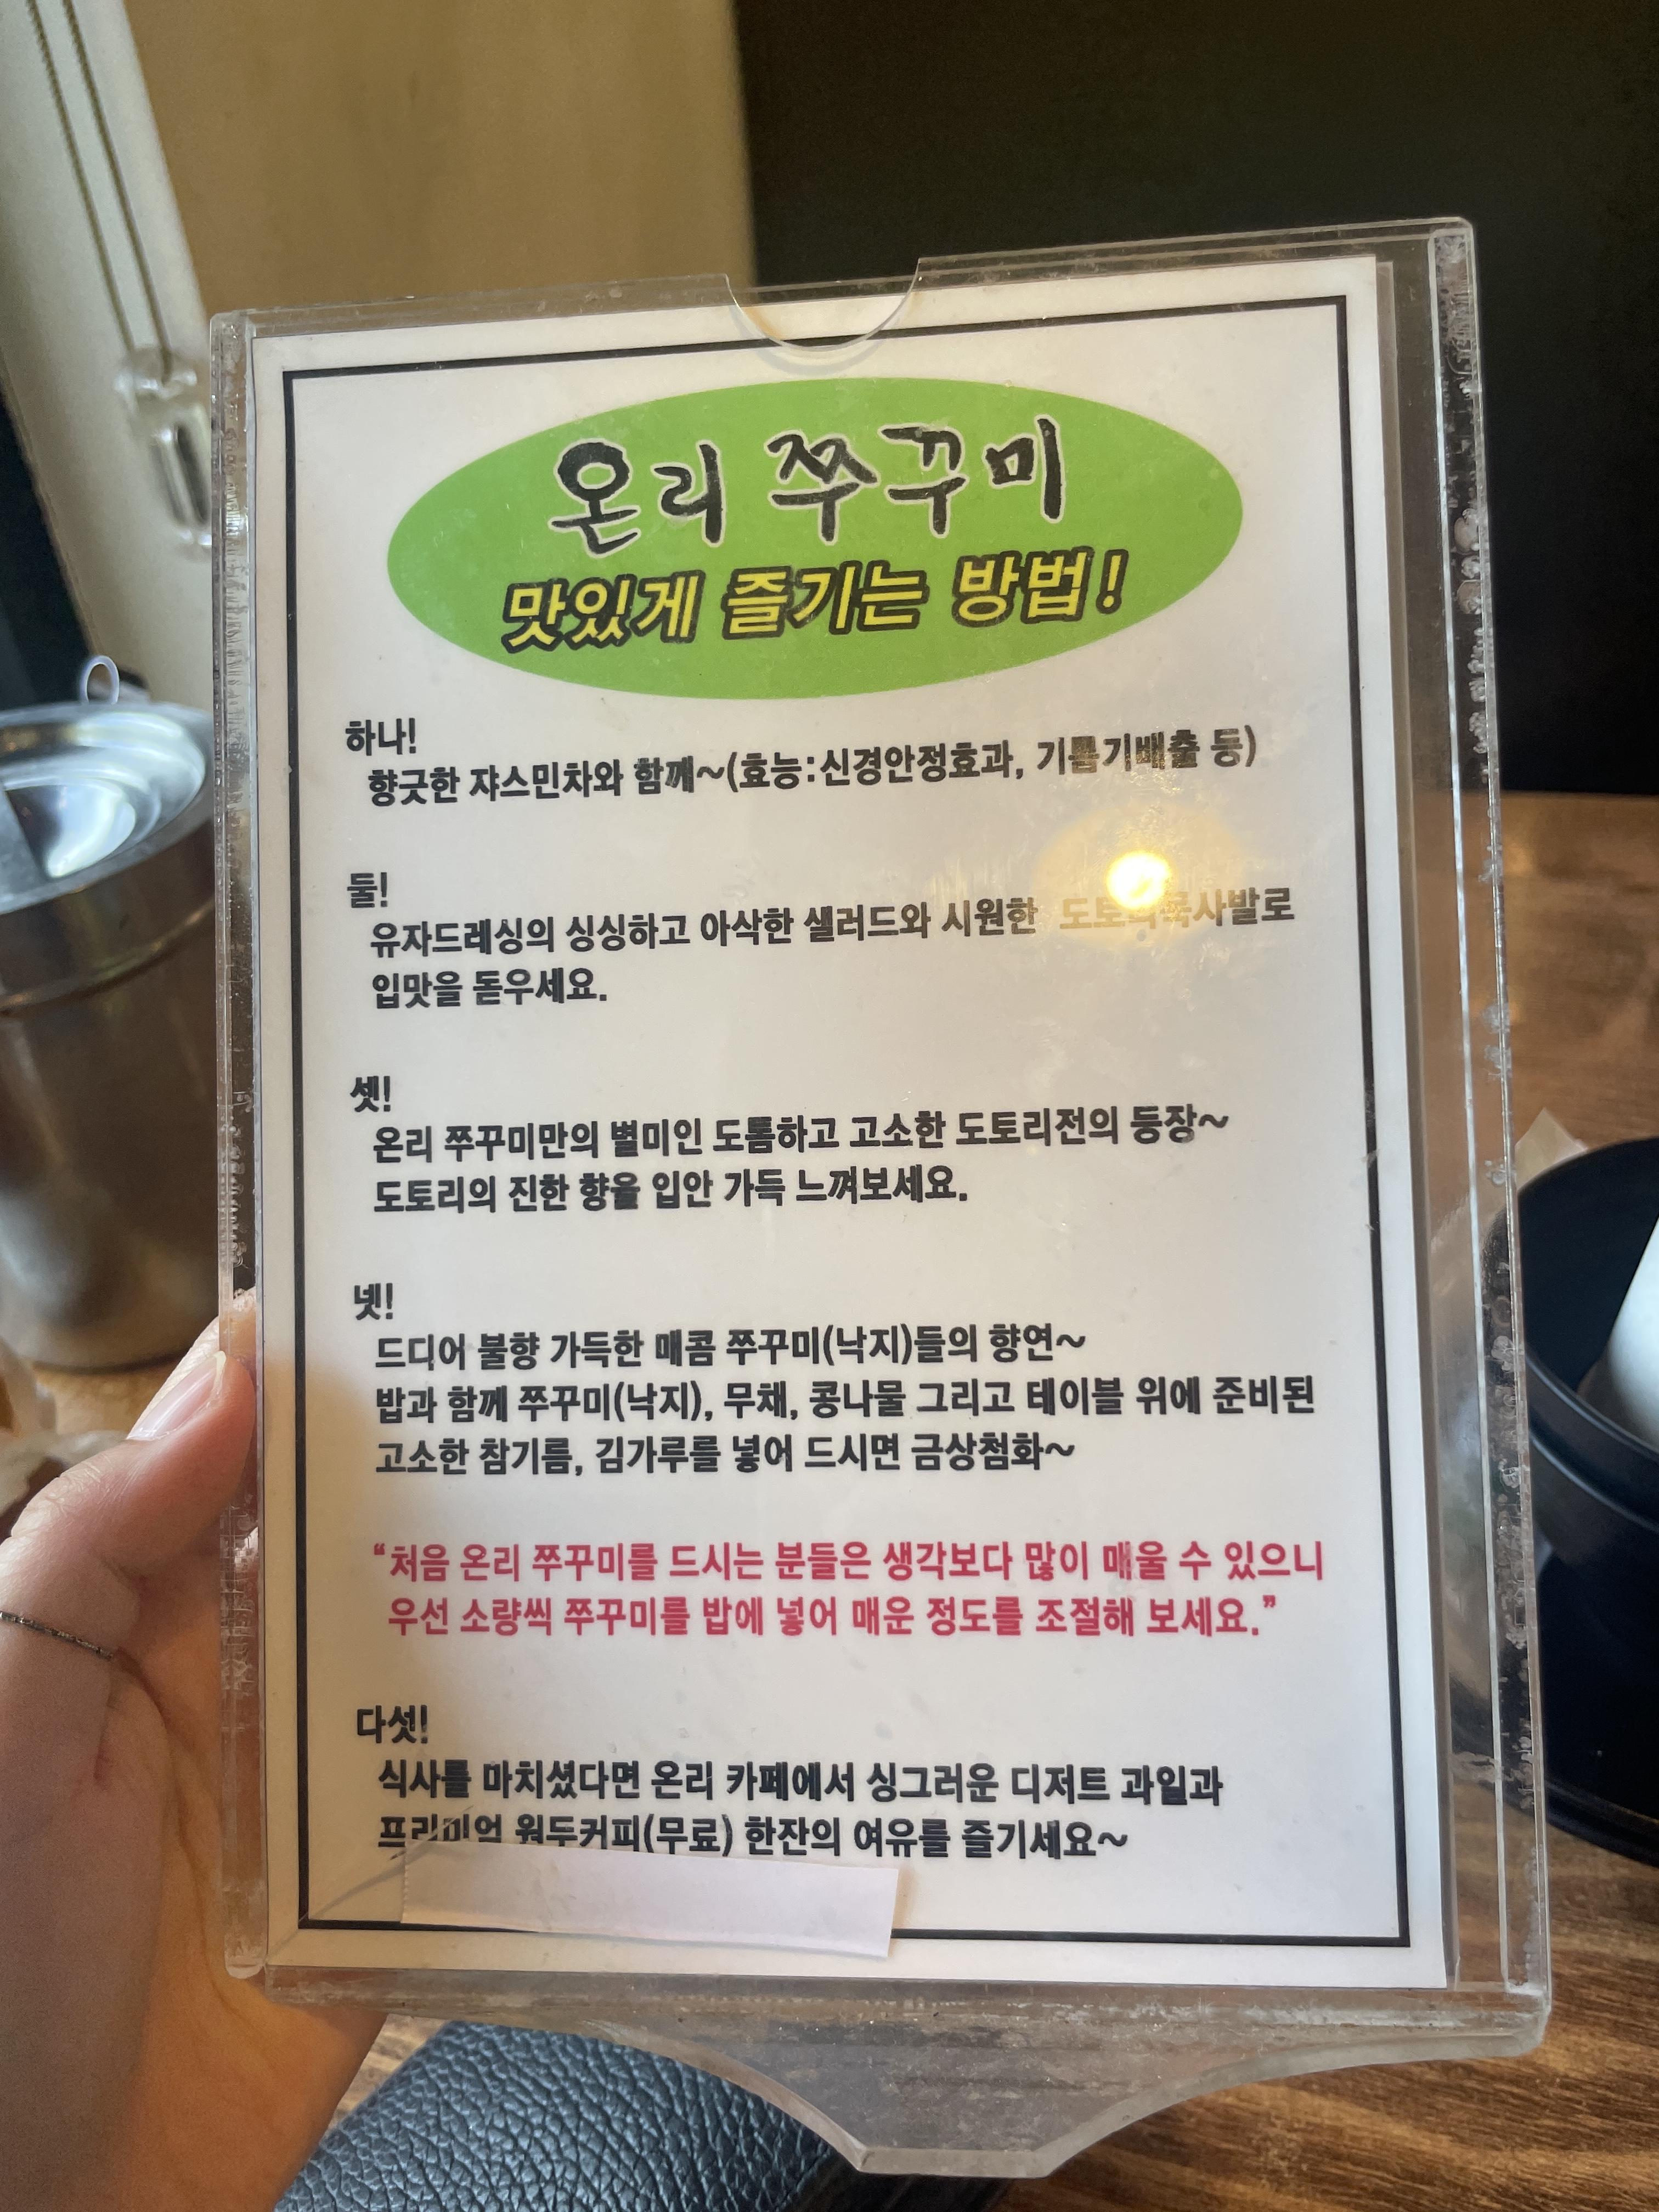 온리 쭈꾸미
맛있게 즐기는 방법!
하나!
향긋한 쟈스민차와 함께~(효능:신경안정효과, 기름기배출 등)
둘!
유자드레싱의 싱싱하고 아삭한 샐러드와 시원한 도토리묵사발로
입맛을 돋우세요.
셋!
온리 쭈꾸미만의 별미인 도톰하고 고소한 도토리전의 등장~
도토리의 진한 향을 입안 가득 느껴보세요.
넷!
드디어 불향 가득한 매콤 쭈꾸미(낙지)들의 향연~
밥과 함께 쭈꾸미(낙지), 무채, 콩나물 그리고 테이블 위에 준비된
고소한 참기름, 김가루를 넣어 드시면 금상첨화~
“처음 온리 쭈꾸미를 드시는 분들은 생각보다 많이 매울 수 있으니
우선 소량씩 쭈꾸미를 밥에 넣어 매운 정도를 조절해 보세요.”
다섯!
식사를 마치셨다면 온리 카페에서 싱그러운 디저트 과일과
프리미엄 원두커피(무료) 한잔의 여유를 즐기세요~